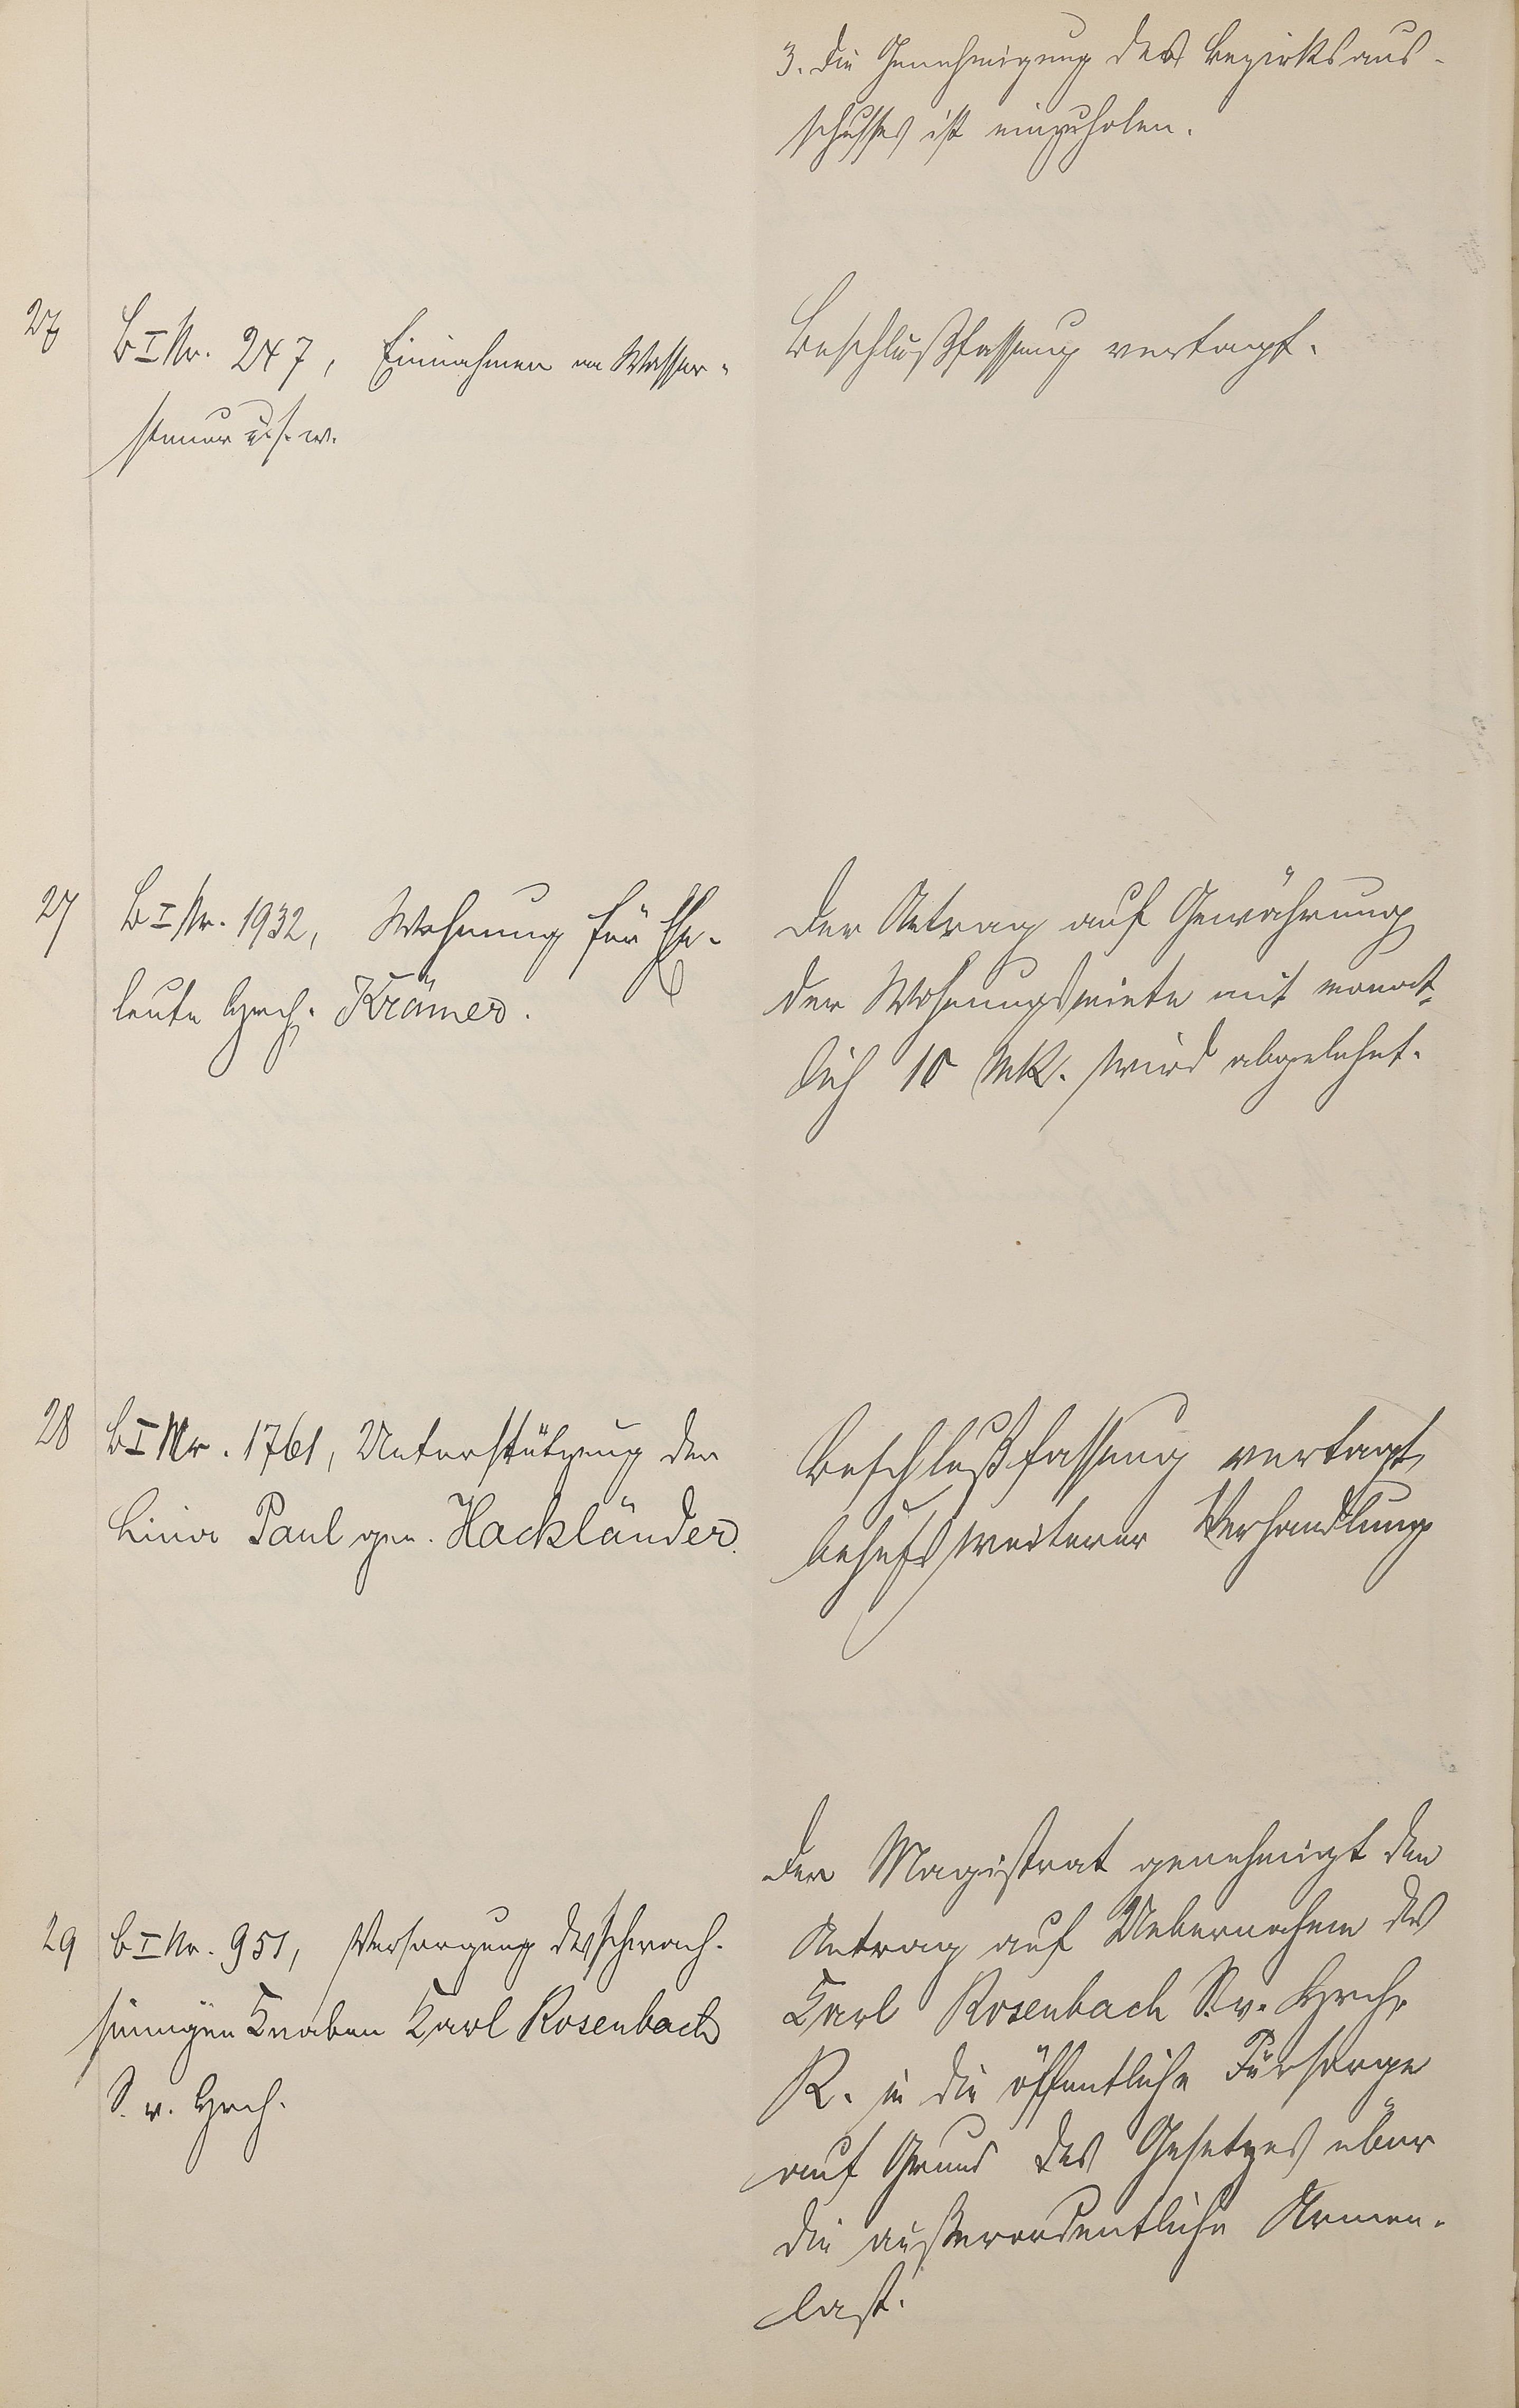 3. Die Genehmigung des Bezirksaus-
schusses ist einzuholen.
26
B I Nr. 247, Einnahmen an Wasser-
steuer u.s.w.
Beschlußfassung vertagt.
27
B I Nr. 1932, Wohnung für Ehe-
leute Hrch. Krämer.
Der Antrag auf Gewährung
der Wohnungsmiete mit monat-
lich 10 Mk. wird abgelehnt.
28
B I Nr. 1761, Unterstützung der
Lina Paul gen. Hackländer.
Beschlußfassung vertagt,
behufs weiterer Verhandlung
29
B I Nr. 951, Versorgung des schwach-
sinnigen Knaben Karl Rosenbach
S. v. Hrch.
Der Magistrat genehmigt den
Antrag auf Uebernahme des
Karl Rosenbach S. v. Hrch.
R. in die öffentliche Fürsorge
auf Grund des Gesetzes über
die außerordentliche Armen-
last.